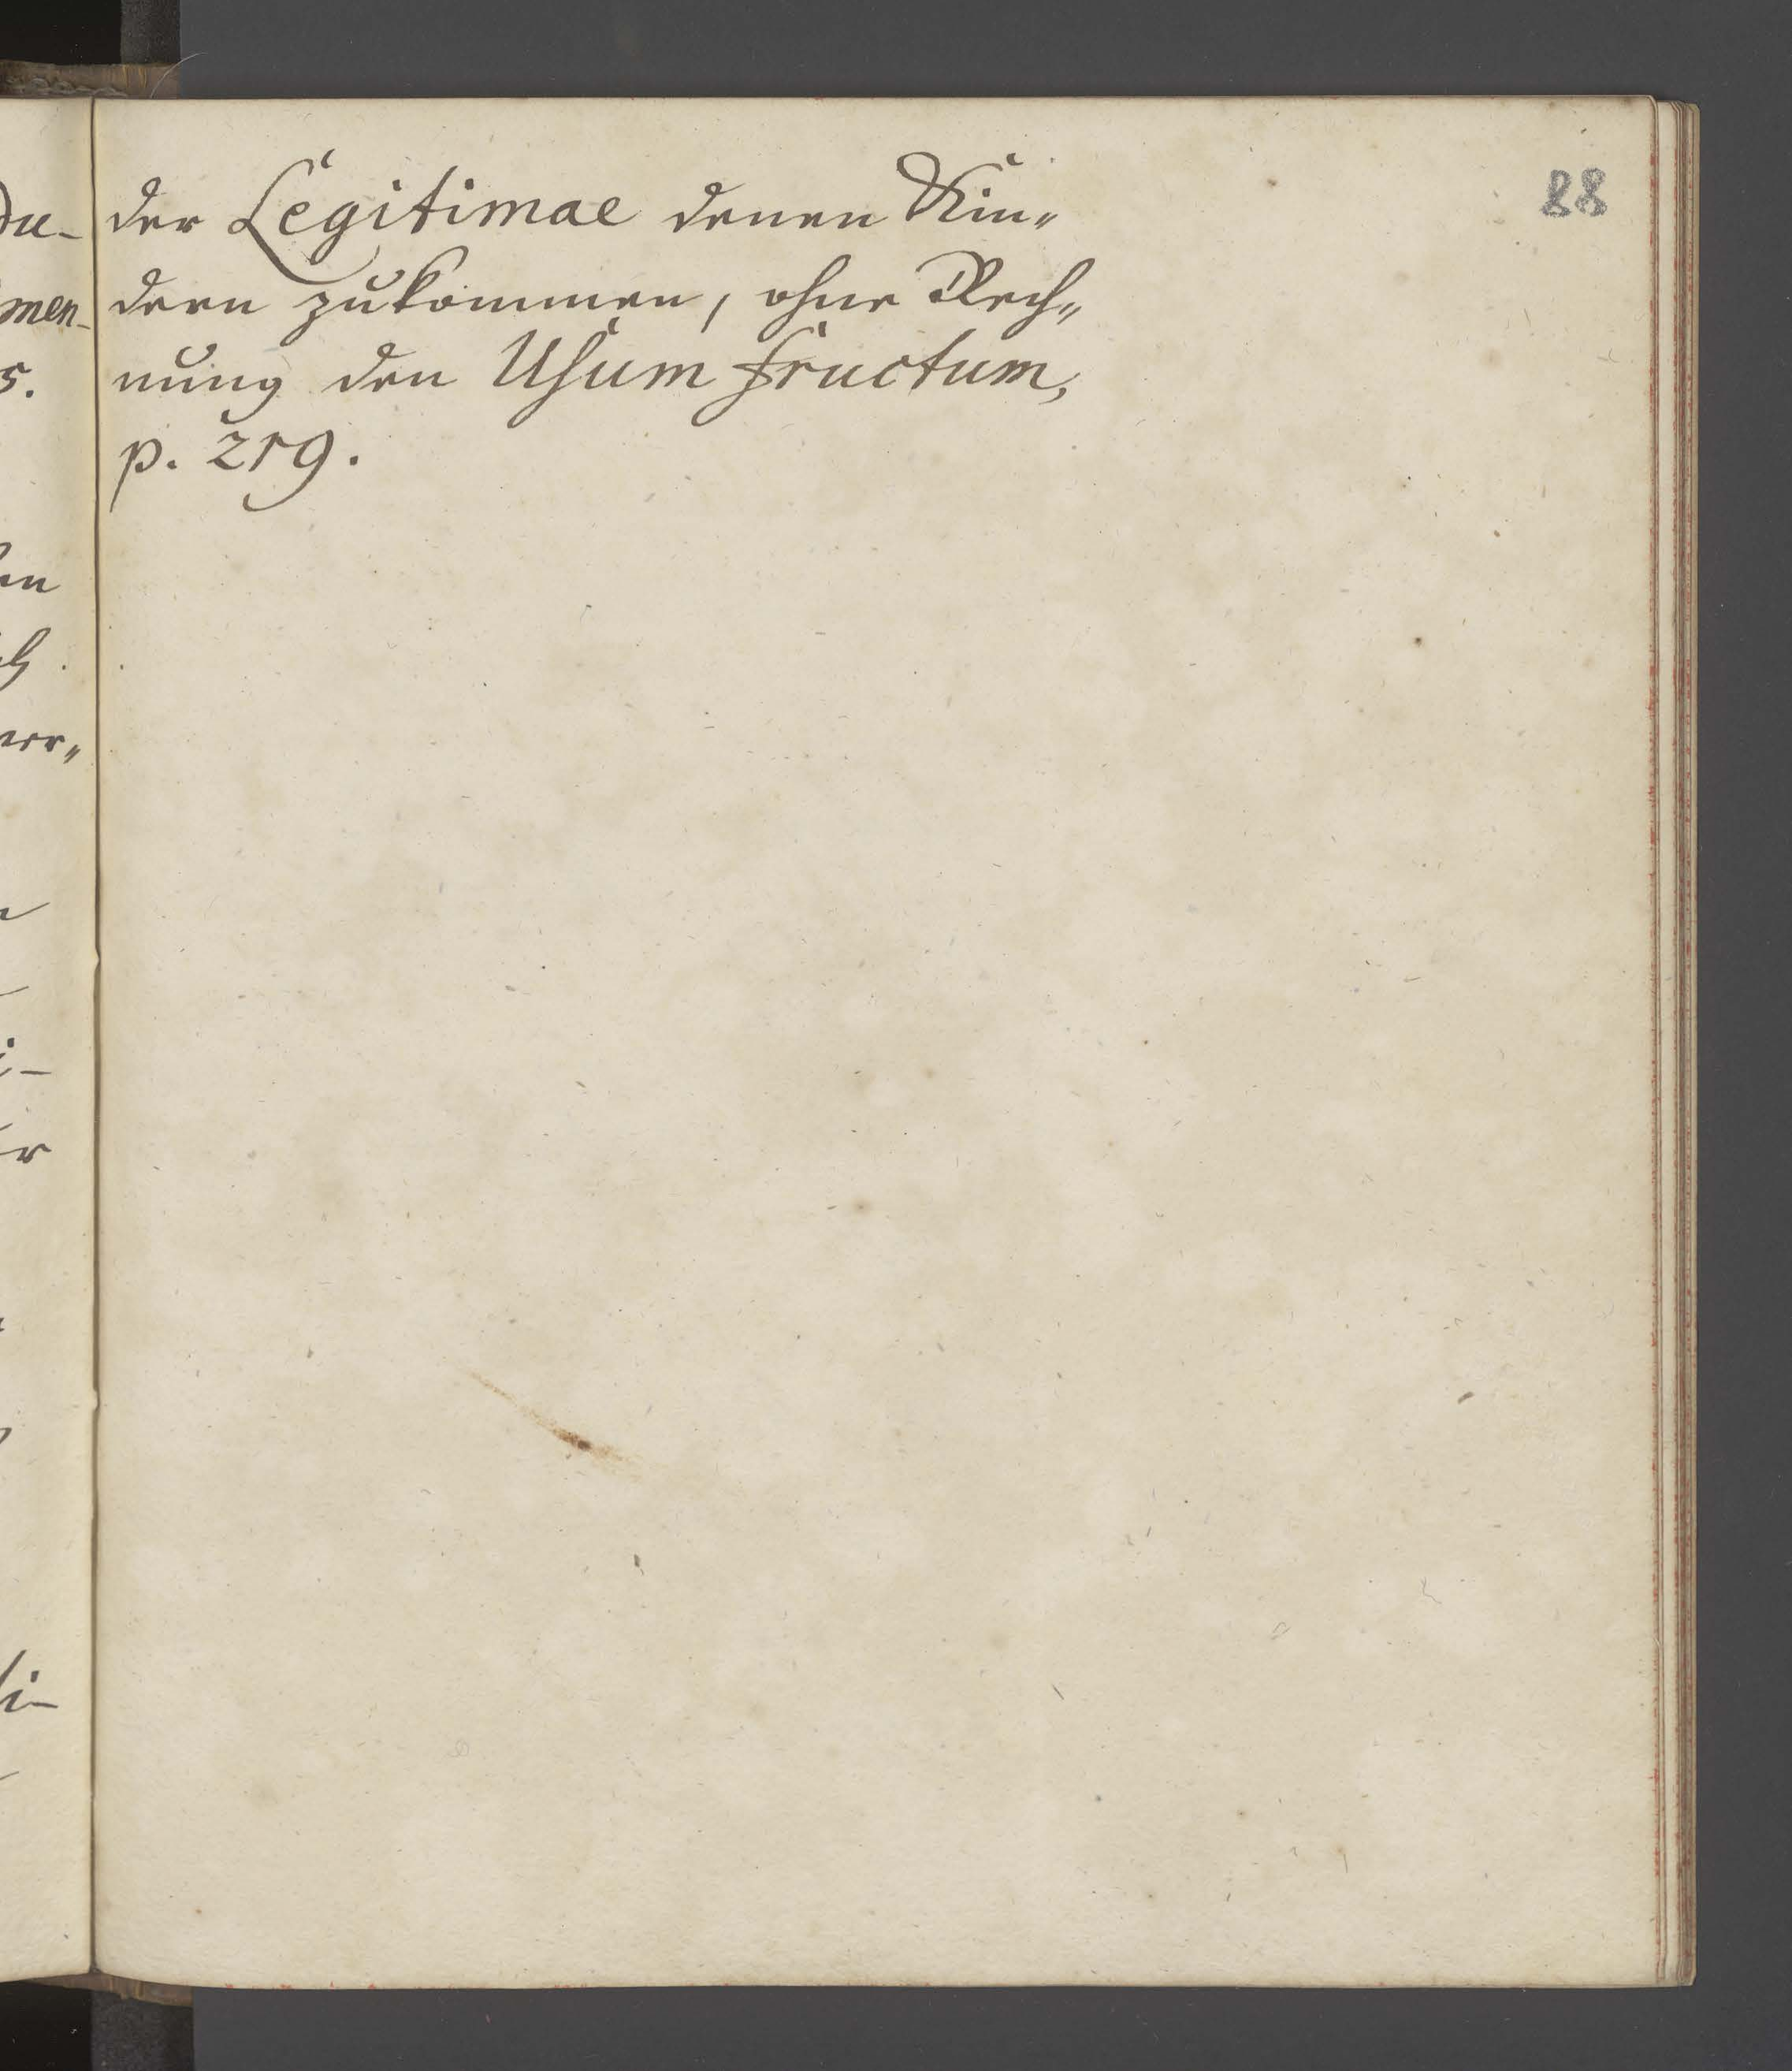 88
der Legitimae denen Kin„
dern zukommen, ohne Rech„
nung den Usum fructum,
p. 219.